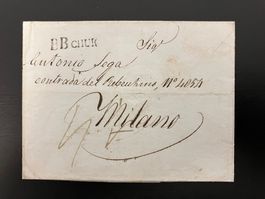 BB CHUR
Sigr
Antonio Sega
contrada del Rubenhino, N.º 4054
Milano